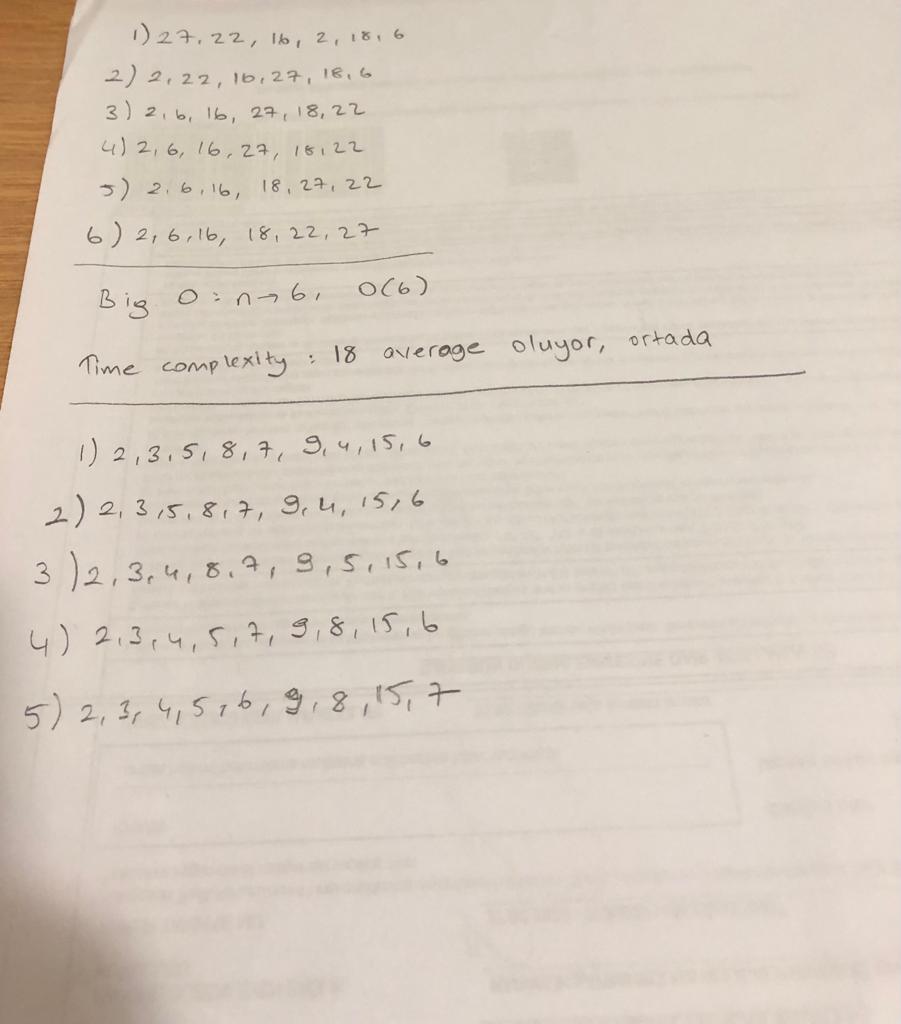 1) 27, 22, 16, 2, 18, 6
2) 2, 22, 16, 27, 18, 6
3) 2, 6, 16, 27, 18, 22
4) 2, 6, 16, 27, 18, 22
5) 2, 6, 16, 18, 27, 22
6) 2, 6, 16, 18, 22, 27
Big O : n → 6, O(6)
Time complexity : 18 average oluyor, ortada
1) 2, 3, 5, 8, 7, 9, 4, 15, 6
2) 2, 3, 5, 8, 7, 9, 4, 15, 6
3) 2, 3, 4, 8, 7, 9, 5, 15, 6
4) 2, 3, 4, 5, 7, 9, 8, 15, 6
5) 2, 3, 4, 5, 6, 9, 8, 15, 7